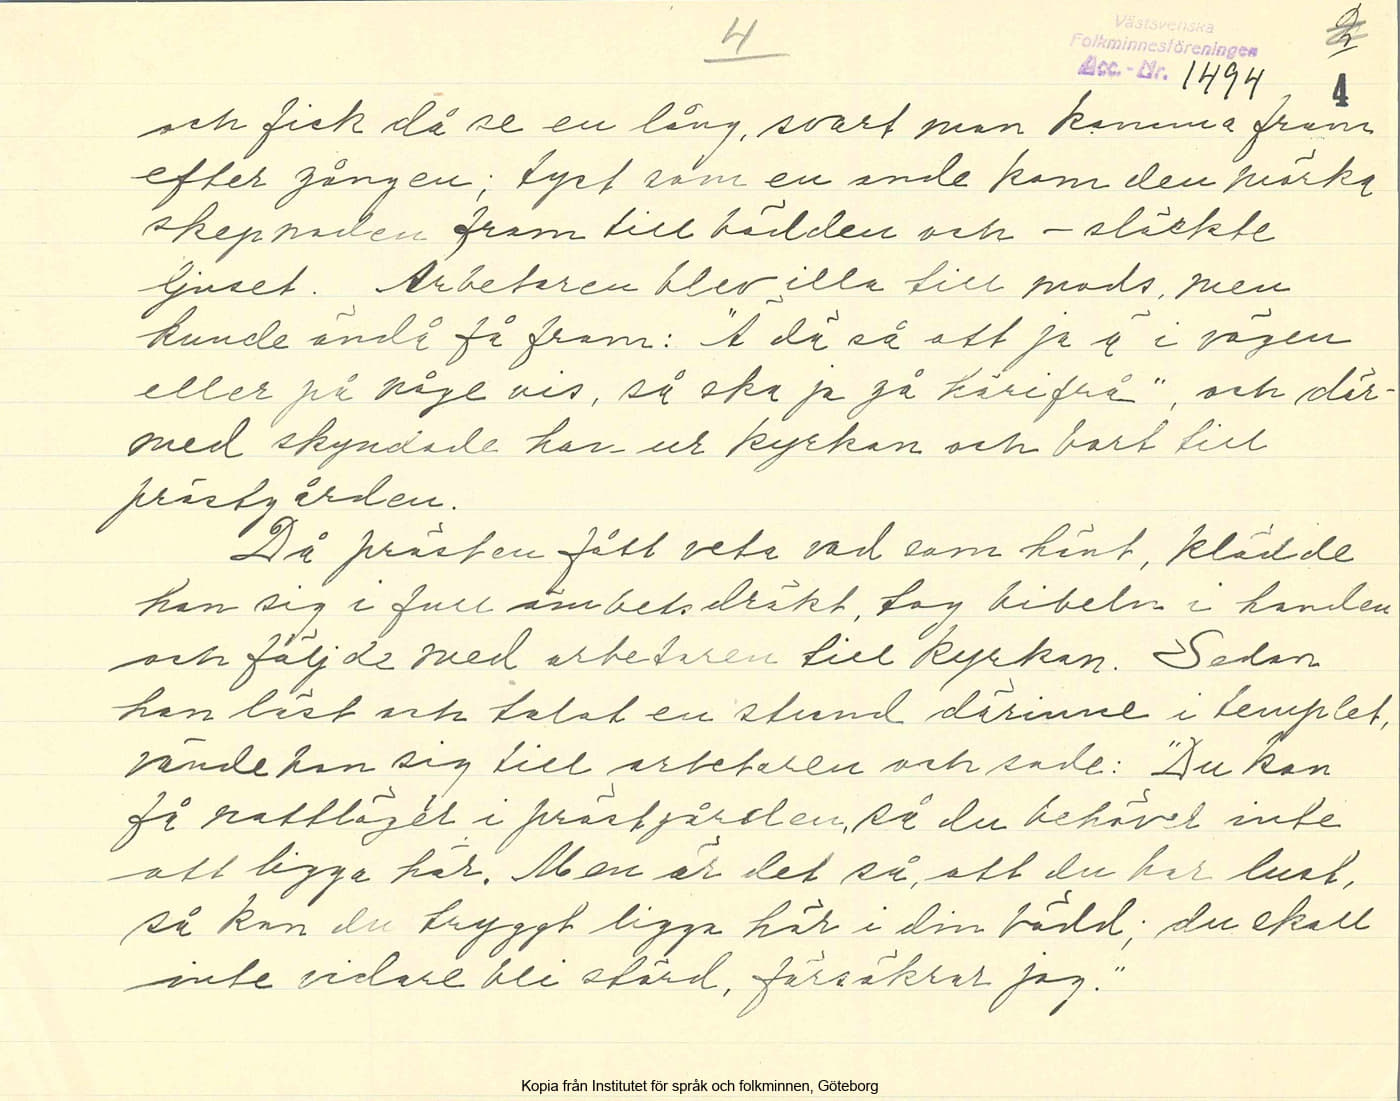 4
Västsvenska
Folkminnesföreningen
Acc.-Nr. 1494
2
4
och fick då se en lång, svart man komma fram
efter gången; tyst som en ande kom den mörka
skepnaden fram till bädden och – släckte
ljuset. Arbetaren blev illa till mods, men
kunde ändå få fram: "Ä dä så att ja ä i vägen
eller på någe vis, så ska ja gå härifrå", och där-
med skyndade han ur kyrkan och bort till
prästgården.
Då prästen fått veta vad som hänt, klädde
han sig i full ämbetsdräkt, tog bibeln i handen
och följde med arbetaren till kyrkan. Sedan
han läst och talat en stund därinne i templet,
vände han sig till arbetaren och sade: "Du kan
få nattläger i prästgården, så du behöver inte
att ligga här. Men är det så, att du har lust,
så kan du tryggt ligga här i din bädd; du skall
inte vidare bli störd, försäkrar jag."
Kopia från Institutet för språk och folkminnen, Göteborg